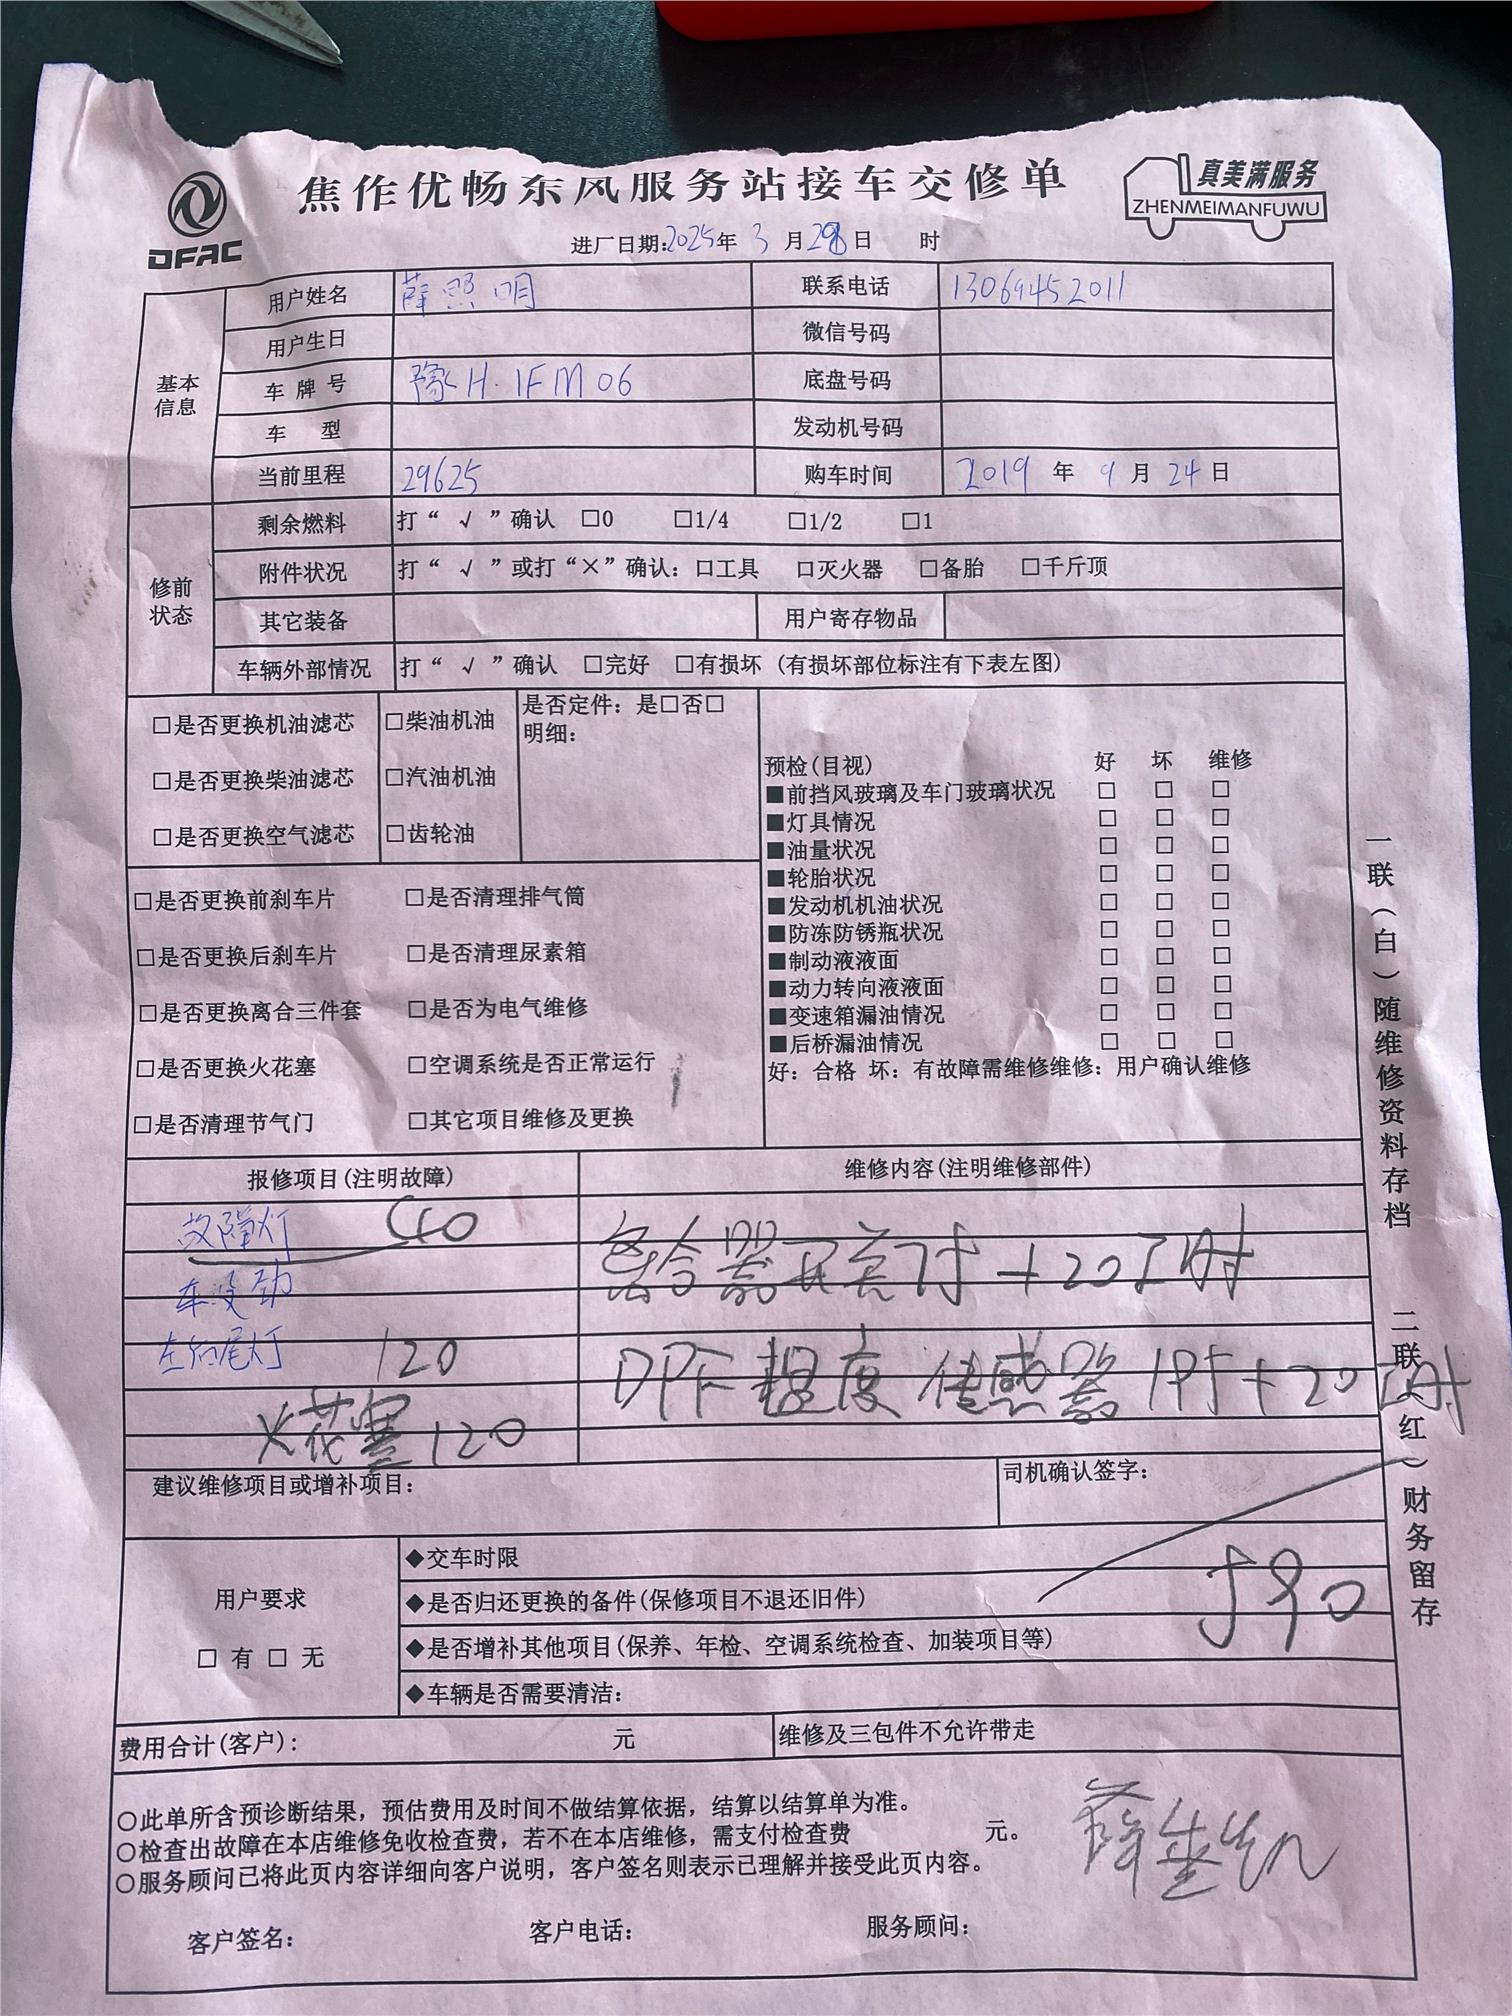 焦作优畅东风服务站接车交修单
DFAC
真美满服务
ZHENMEIMANFUWU
进厂日期:2025年 3 月 28 日 时
基本信息
用户姓名 薛照明 联系电话 13069452011
用户生日 微信号码
车 牌 号 豫H·1FM06 底盘号码
车 型 发动机号码
当前里程 29625 购车时间 2019 年 9 月 24 日
修前状态
剩余燃料 打“ √ ”确认 □0 □1/4 □1/2 □1
附件状况 打“ √ ”或打“×”确认: □工具 □灭火器 □备胎 □千斤顶
其它装备 用户寄存物品
车辆外部情况 打“ √ ”确认 □完好 □有损坏 (有损坏部位标注有下表左图)
□是否更换机油滤芯 □柴油机油
□是否更换柴油滤芯 □汽油机油
□是否更换空气滤芯 □齿轮油
是否定件: 是□否□
明细:
□是否更换前刹车片 □是否清理排气筒
□是否更换后刹车片 □是否清理尿素箱
□是否更换离合三件套 □是否为电气维修
□是否更换火花塞 □空调系统是否正常运行
□是否清理节气门 □其它项目维修及更换
预检(目视) 好 坏 维修
■前挡风玻璃及车门玻璃状况 □ □ □
■灯具情况 □ □ □
■油量状况 □ □ □
■轮胎状况 □ □ □
■发动机机油状况 □ □ □
■防冻防锈瓶状况 □ □ □
■制动液液面 □ □ □
■动力转向液液面 □ □ □
■变速箱漏油情况 □ □ □
■后桥漏油情况 □ □ □
好: 合格 坏: 有故障需维修维修: 用户确认维修
报修项目(注明故障) 维修内容(注明维修部件)
故障灯
车没劲
左后尾灯 120
火花塞 120
离合器开关 75 + 20工时
DPF 温度 传感器 195 + 20工时
建议维修项目或增补项目: 司机确认签字:
590
用户要求
□ 有 □ 无
◆交车时限
◆是否归还更换的备件(保修项目不退还旧件)
◆是否增补其他项目(保养、年检、空调系统检查、加装项目等)
◆车辆是否需要清洁:
费用合计(客户): 元 维修及三包件不允许带走
○此单所含预诊断结果，预估费用及时间不做结算依据，结算以结算单为准。
○检查出故障在本店维修免收检查费，若不在本店维修，需支付检查费 元。
○服务顾问已将此页内容详细向客户说明，客户签名则表示已理解并接受此页内容。
客户签名: 客户电话: 服务顾问:
一联(白)随维修资料存档 二联(红)财务留存